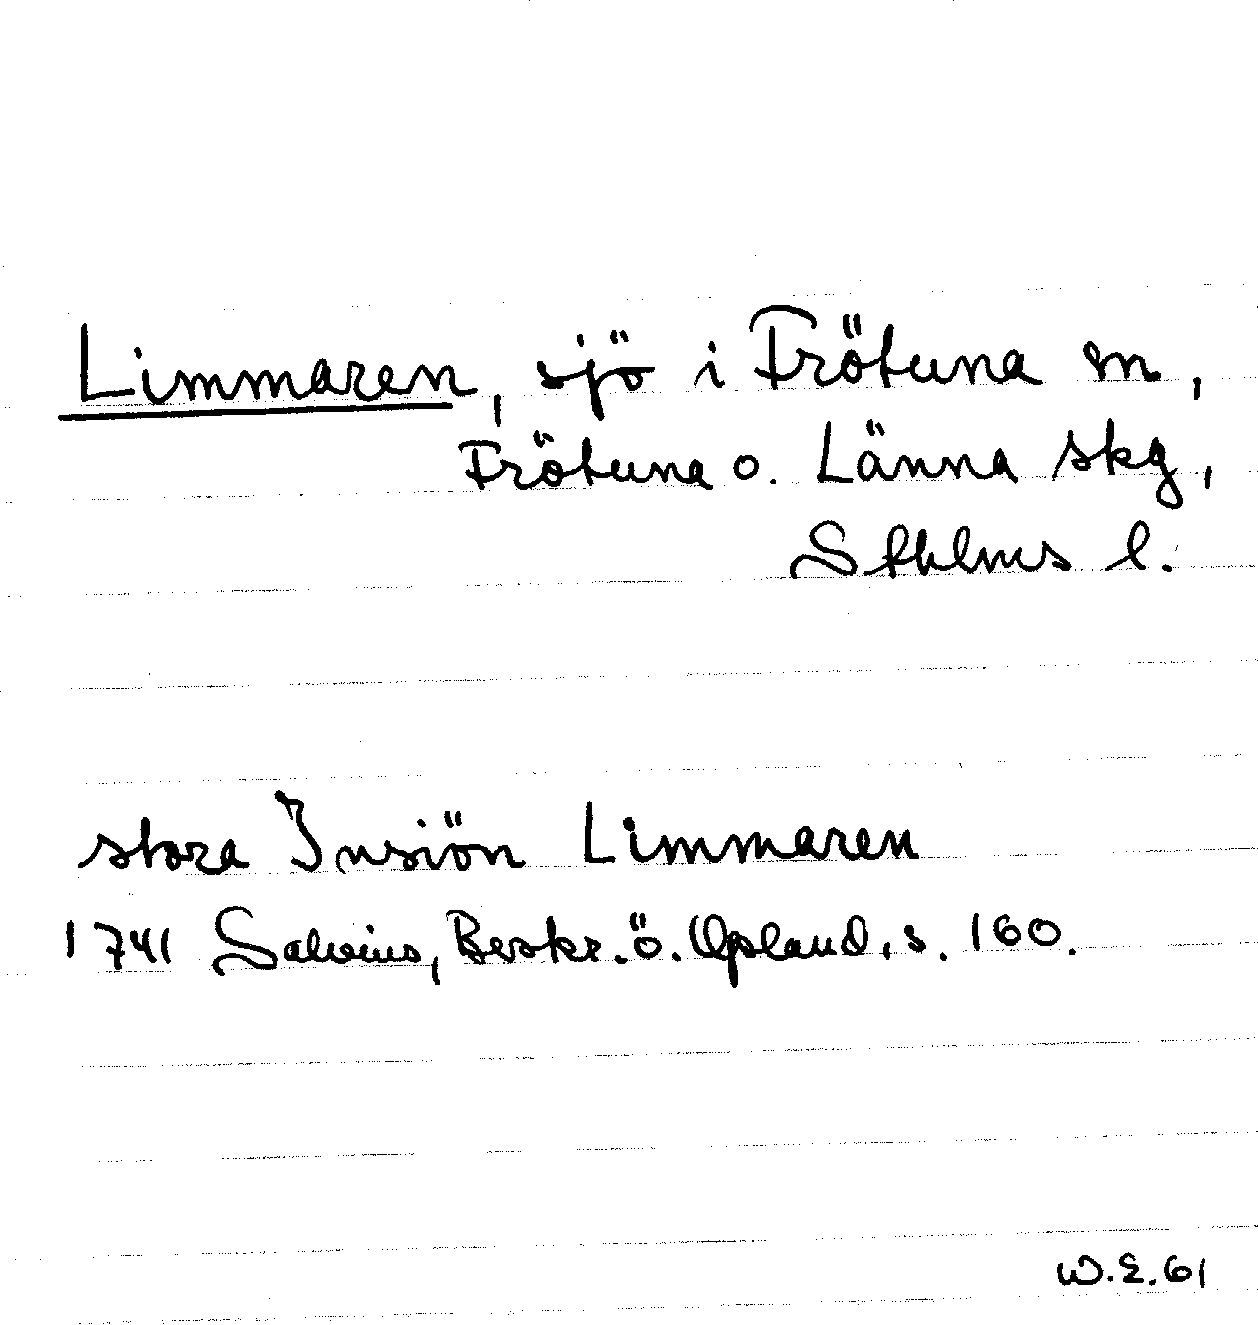 Limmaren, sjö i Frötuna sn,
Frötuna o. Länna skg,
Sthlms l.
stora Insiön Limmaren
1741 Salvius, Beskr. ö. Upland, s. 160.
W.E. 61